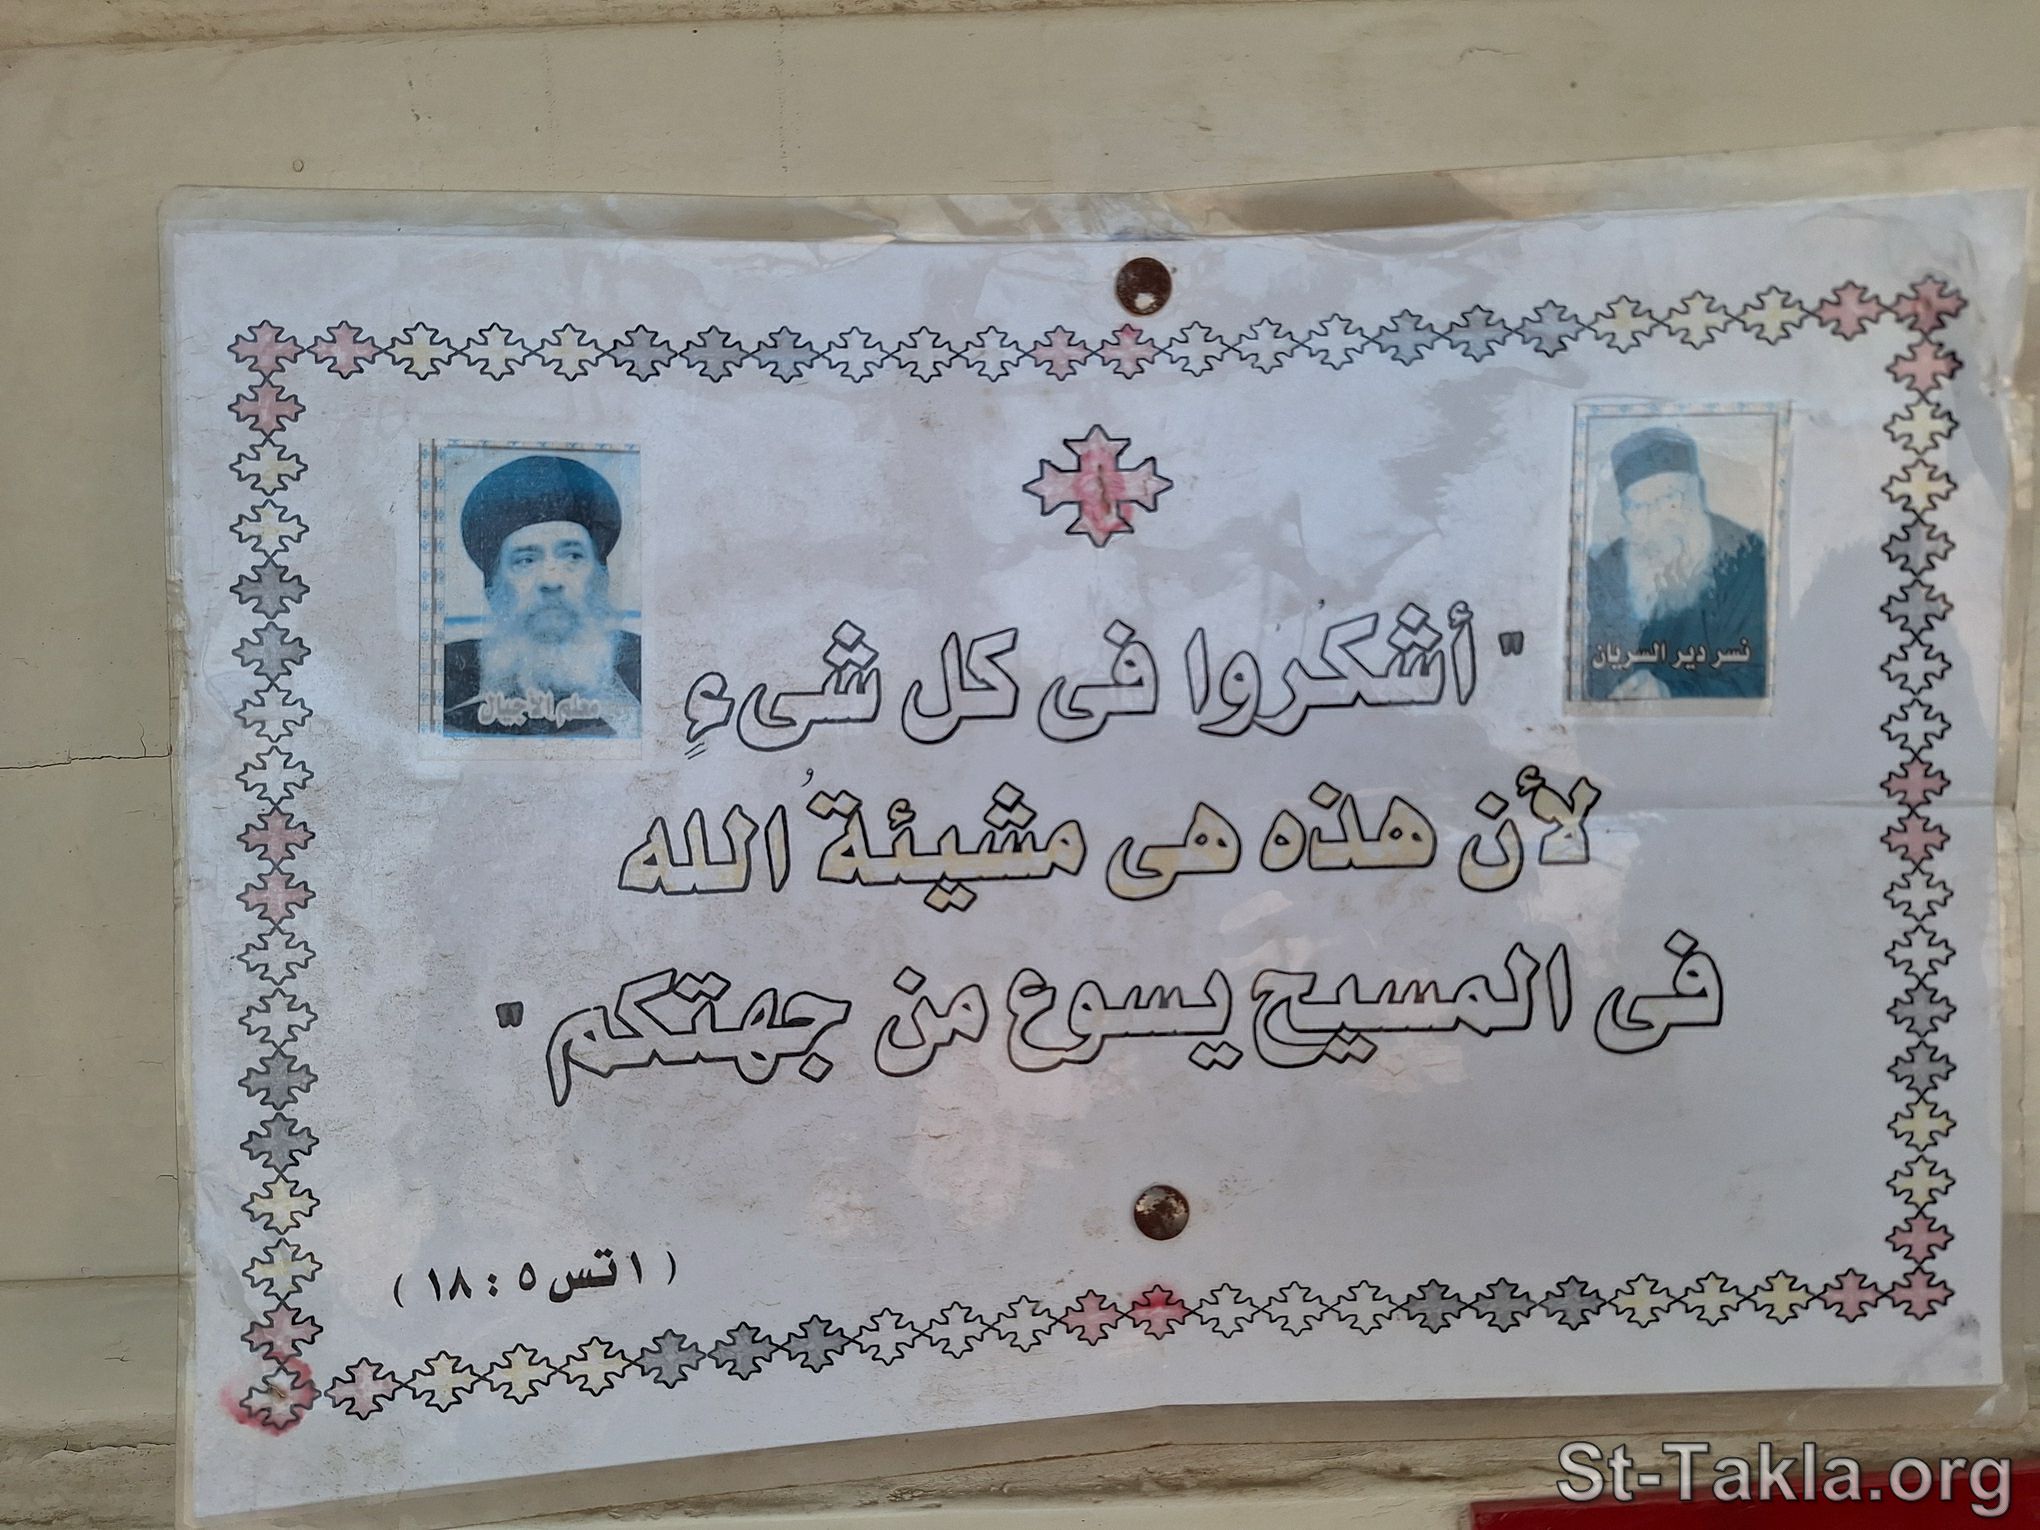 نسر دير السريان
معلم الأجيال
" أشكُروا فى كل شىءٍ
لأن هذه هى مشيئةُ الله
فى المسيح يسوع من جهتكم "
( ١ تس ٥ : ١٨ )
St-Takla.org